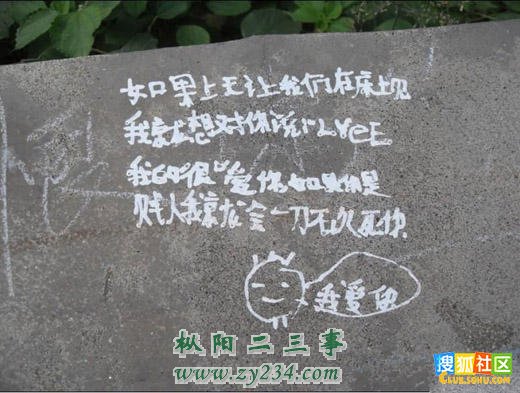 如果上天让我们在床上见
我就想对你说I LVEE
我的"很"爱你如果你是
贱人我就会一刀砍死你.
我爱你
枞阳二三事
www.zy234.com
搜狐社区
CLUB.SOHU.COM